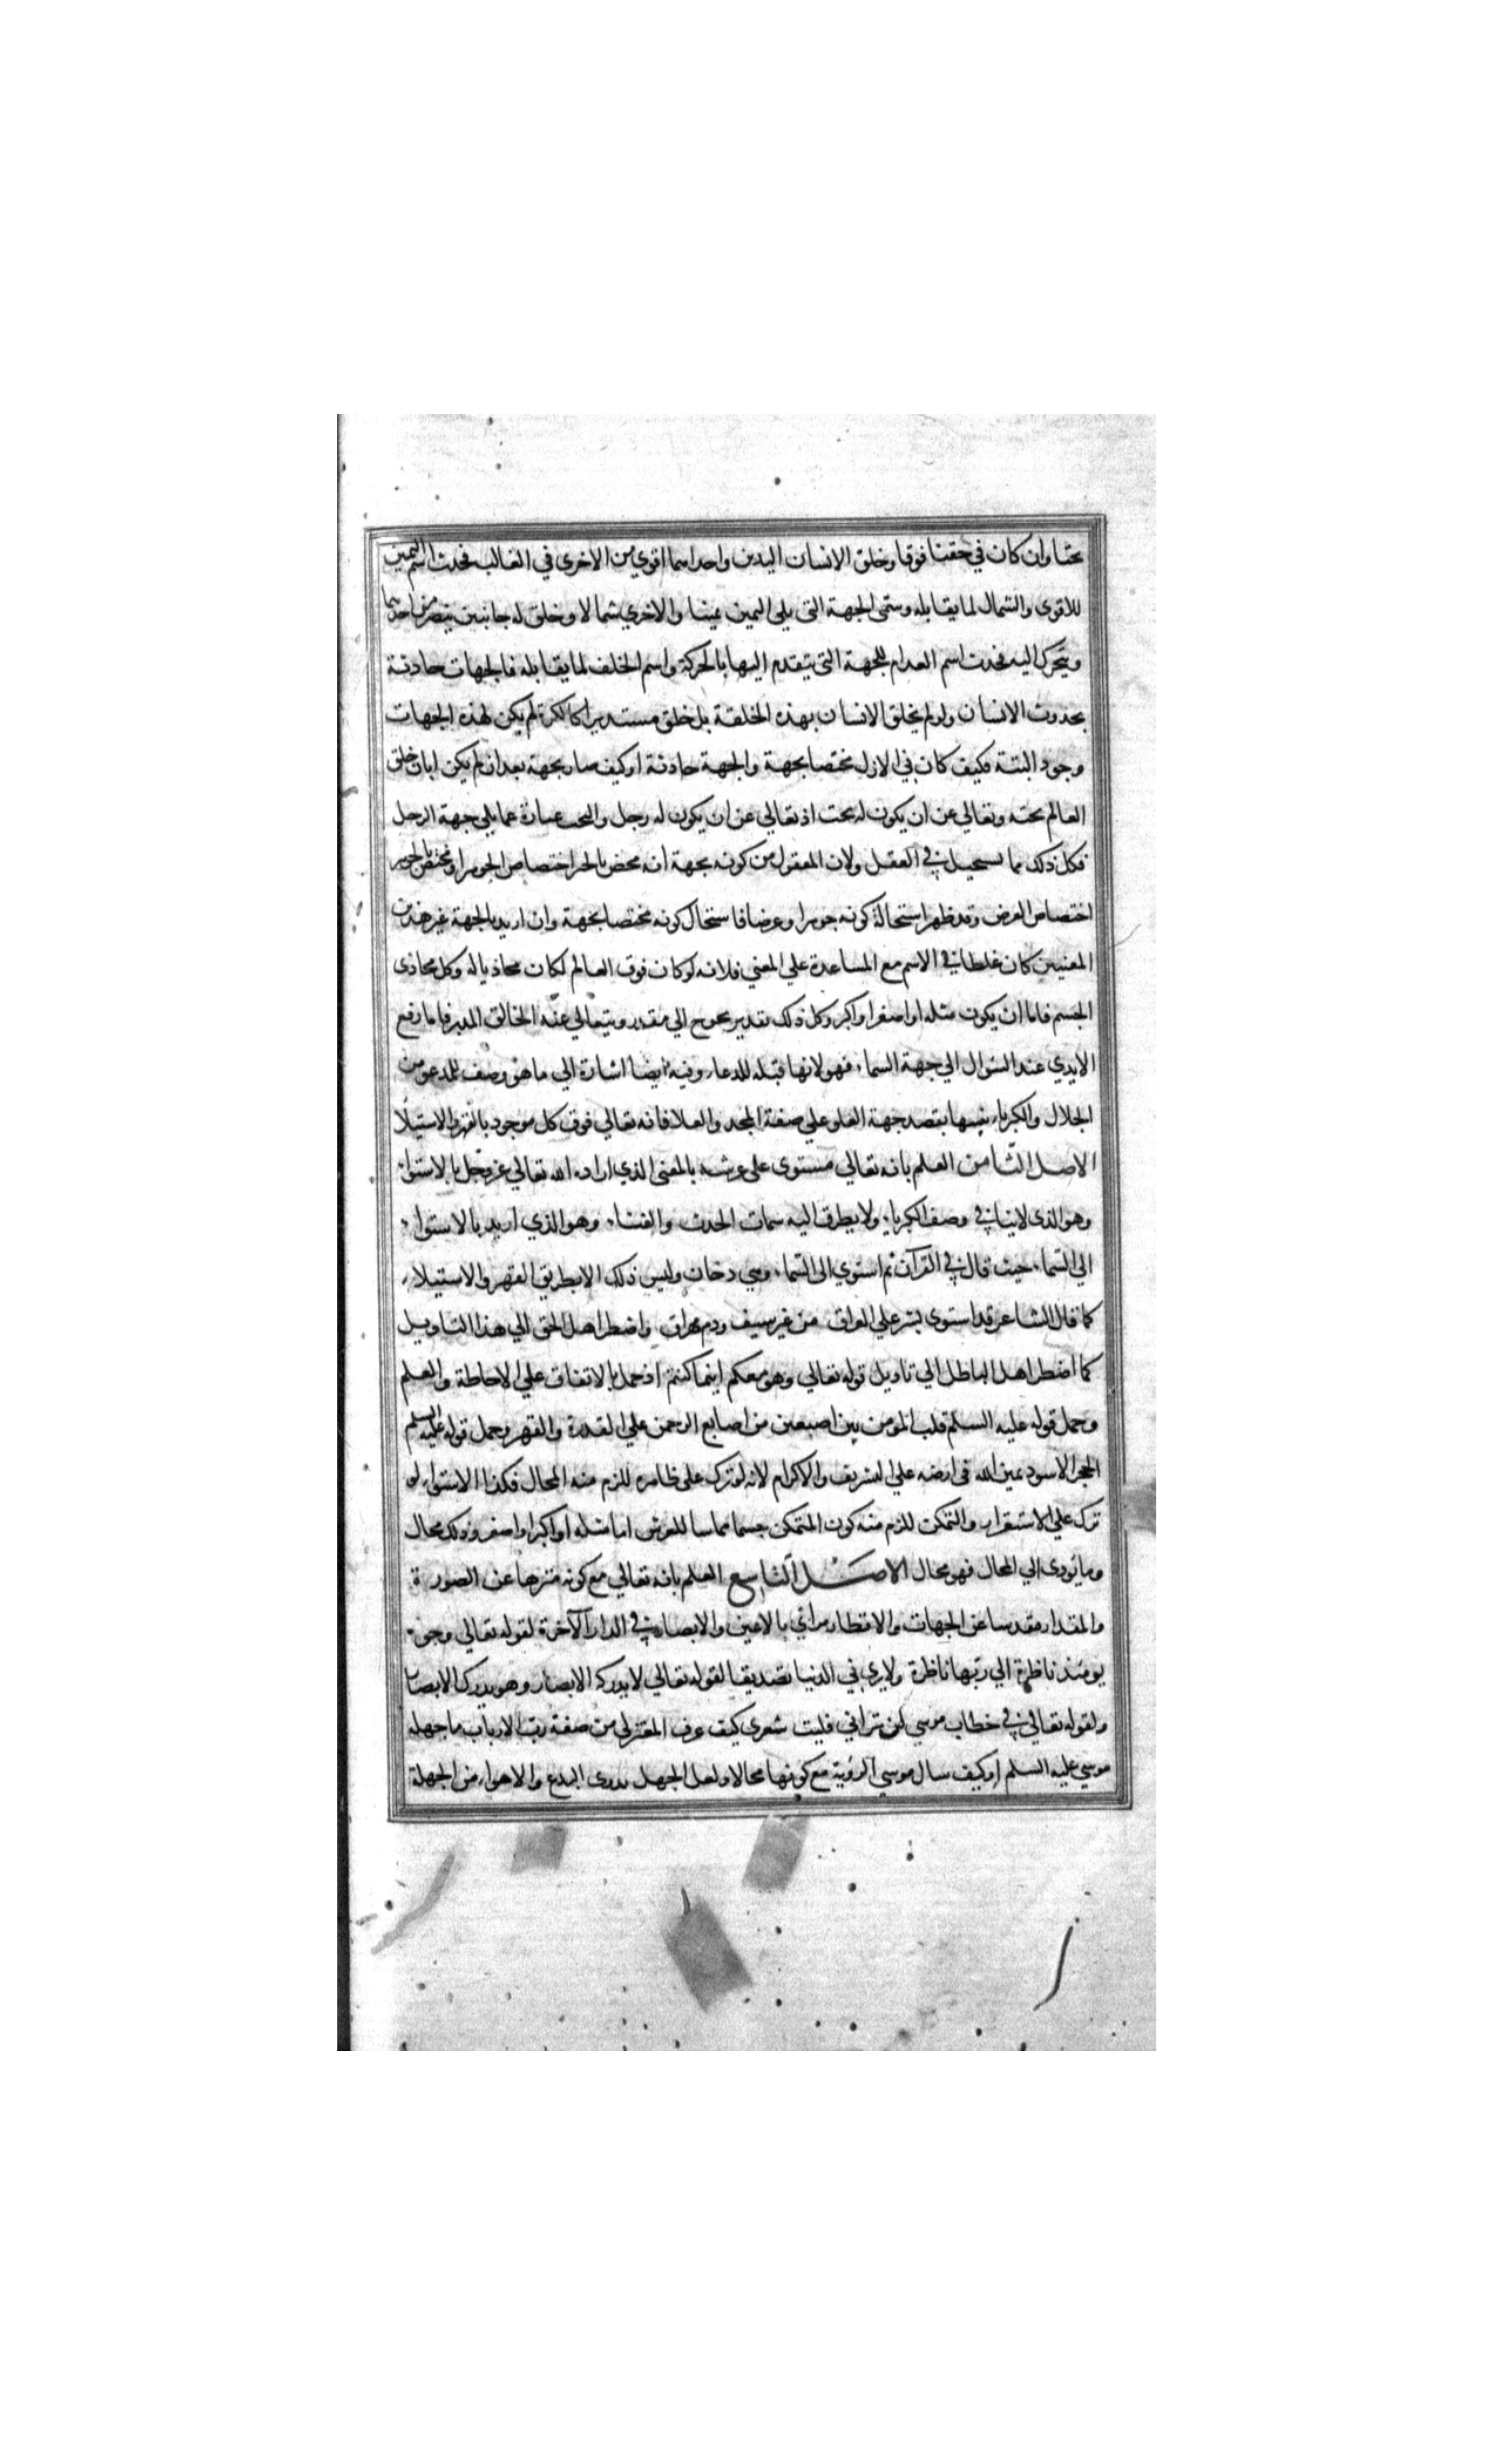 تحتا وان كان في حقنا فوقا وخلق الانسان اليدين واحداهما اقوي من الاخرى في الغالب فحدث اسم اليمين
للاقوى والشمال لما يقابله وسمى الجهة التى يلى اليمين يمينا والاخري شمالا وخلق له جانبين يبصر من احدهما
ويتحرك اليه فحدث اسم القدام للجهة التى يتقدم اليها بالحركة واسم الخلف لما يقابله فالجهات حادثة
بحدوث الانسان ولو لم يخلق الانسان بهذه الخلقة بل خلق مستديرا كالكرة لم يكن لهذه الجهات
وجود البتة فكيف كان في الازل مختصا بجهة والجهة حادثة او كيف صار بجهة بعد ان لم يكن ابان خلق
العالم تحته وتعالي عن ان يكون له تحت اذ تعالي عن ان يكون له رجل والتحت عبارة عما يلي جهة الرجل
فكل ذلك مما يستحيل في العقل ولان المعقول من كونه بجهة انه مختص بالحيز اختصاص الجوهر او مختص بالجوهر
اختصاص العرض وقد ظهر استحالة كونه جوهرا وعرضا فاستحال كونه مختصا بجهة وان اريد بالجهة غير هذين
المعنيين كان غلطا في الاسم مع المساعدة علي المعني فلانه لو كان فوق العالم لكان محاذيا له وكل محاذى
الجسم فاما ان يكون مثله او اصغر او اكبر وكل ذلك تقدير يحوج الي مقدر ويتعالي عنه الخالق المدبر فاما رفع
الايدي عند السؤال الي جهة السماء فهو لانها قبلة للدعاء وفيه ايضا اشارة الي ما هو وصف للمدعو من
الجلال والكبرياء تنبيها بقصد جهة العلو علي صفة المجد والعلا فانه تعالي فوق كل موجود بالقهر والاستيلا
الاصل الثامن العلم بانه تعالي مستوى على عرشه بالمعنى الذي اراده الله تعالي عز وجل بالاستواء
وهو الذى لا ينافي وصف الكبرياء ولا يطرق اليه سمات الحدث والفناء وهو الذي اريد بالاستواء
الي السماء حيث قال في القرآن ثم استوي الى السماء وهي دخان وليس ذلك الا بطريق القهر والاستيلاء
كما قال الشاعر قد استوى بشر علي العراق من غير سيف ودم مهراق واضطر اهل الحق الي هذا التاويل
كما اضطر اهل الباطل الي تاويل قوله تعالي وهو معكم اينما كنتم اذ حمل بالاتفاق علي الاحاطة والعلم
وحمل قوله عليه السلم قلب المومن بين اصبعين من اصابع الرحمن علي القدرة والقهر وحمل قوله عليه السلم
الحجر الاسود يمين الله فى ارضه علي التشريف والاكرام لانه لو ترك على ظاهره للزم منه المحال فكذا الاستواء لو
ترك علي الاستقرار والتمكن للزم منه كون المتمكن جسما مماسا للعرش اما مثله او اكبر او اصغر وذلك محال
وما يؤدى الي المحال فهو محال الاصل التاسع العلم بانه تعالي مع كونه منزها عن الصورة
والمقدار مقدسا عن الجهات والاقطار مرائي بالاعين والابصار في الدار الآخرة لقوله تعالي وجوه
يومئذ ناظرة الي ربها ناظرة ولا يري في الدنيا تصديقا لقوله تعالي لا يدركه الابصار وهو يدرك الابصار
ولقوله تعالي في خطاب موسي لن تراني فليت شعرى كيف عرف المعتزلى من صفة رب الارباب ما جهله
موسي عليه السلم او كيف سال موسي الرؤية مع كونها محالا ولعل الجهل بذوى البدع والاهواء من الجهلة